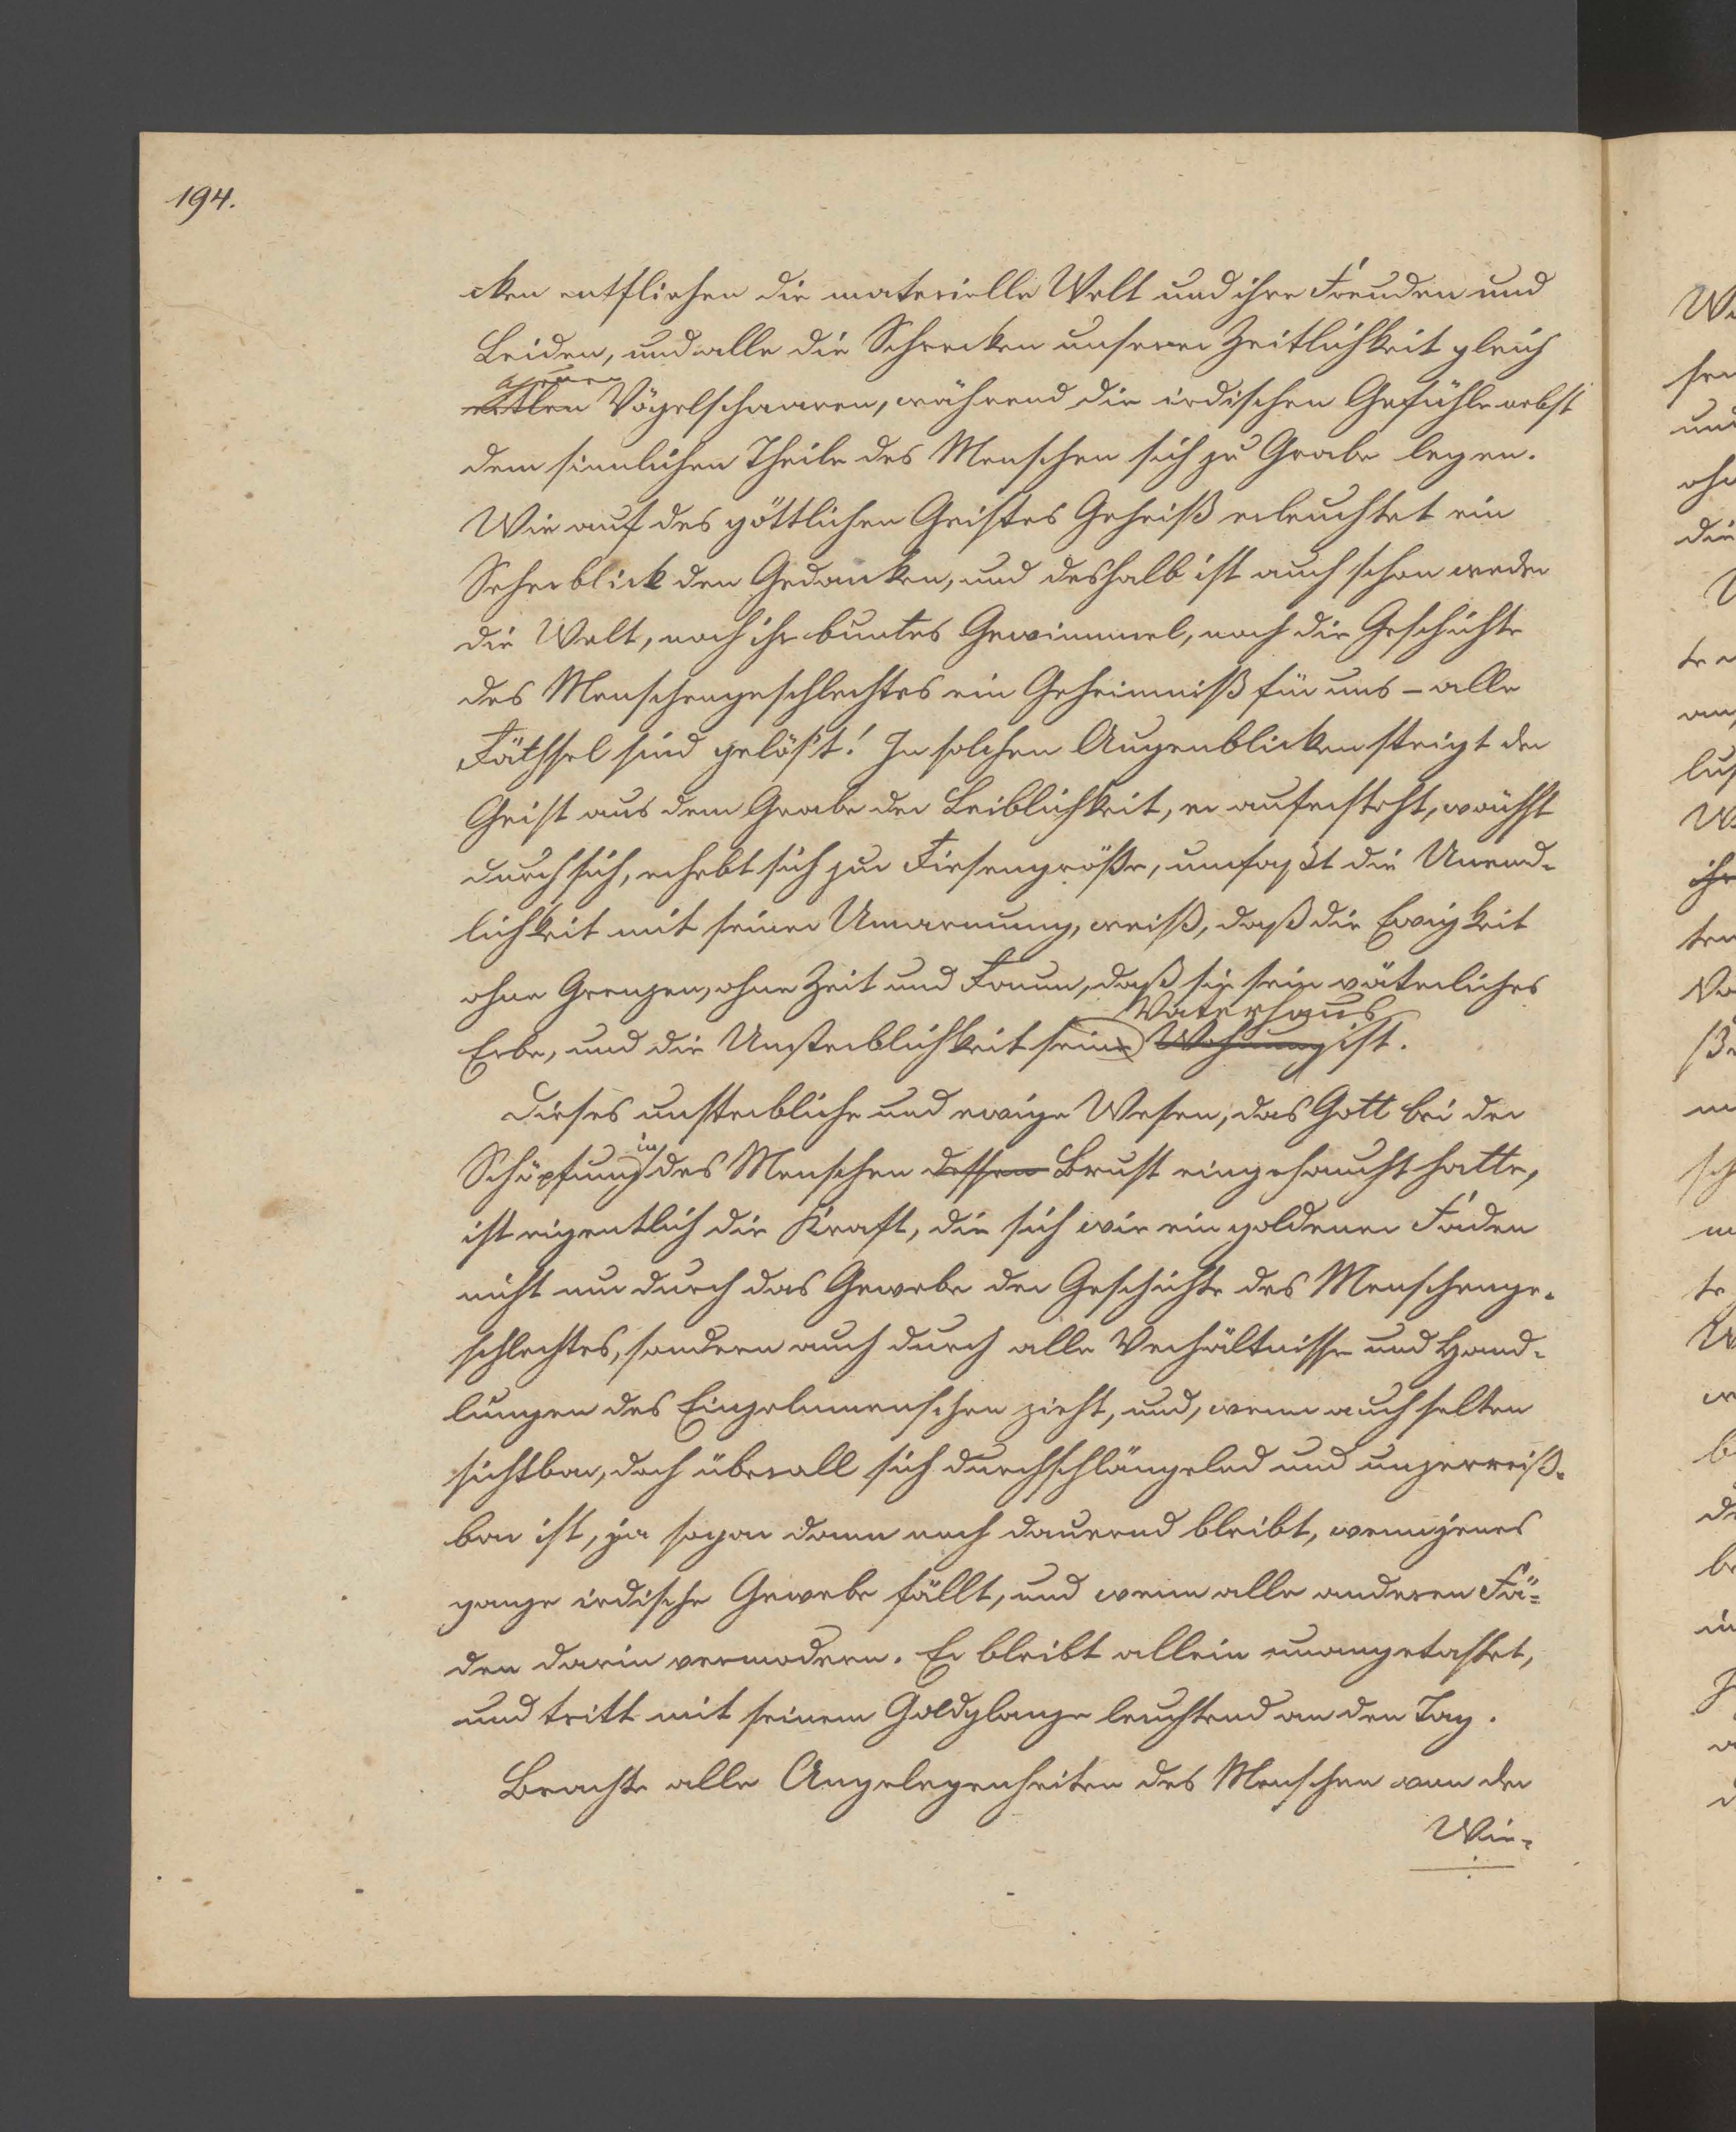 194.
cken entfliehen die materielle Welt und ihre Freuden und
Leiden, und alle die Schrecken unserer Zeitlichkeit gleich
eitlen Vögelschaaren, während die irdischen Gefühle nebst
dem sinnlichen Theile des Menschen sich zu Grabe legen.
Wie auf des göttlichen Geistes Geheiß erleuchtet ein
Seherblick den Gedanken, und deshalb ist auch schon weder
die Welt, noch ihr buntes Gewimmel, noch die Geschichte
des Menschengeschlechtes ein Geheimniß für uns – alle
Räthsel sind gelöst! In solchen Augenblicken steigt der
Geist aus dem Grabe der Leiblichkeit, er aufersteht, wächst
durch sich, erhebt sich zur Riesengröße, umfaßt die Unend-
lichkeit mit seiner Umarmung, weiß, daß die Ewigkeit
ohne Grenzen, ohne Zeit und Raum, daß sie sein väterliches
Vaterhaus
Erbe, und die Unsterblichkeit seine Wohnung ist.
Dieses unsterbliche und ewige Wesen, das Gott bei der
in
Schöpfung des Menschen dessen Brust eingehaucht hatte,
ist eigentlich die Kraft, die sich wie ein goldener Faden
nicht nur durch das Gewebe der Geschichte des Menschenge-
schlechtes, sondern auch durch alle Verhältnisse und Hand-
lungen des Einzelnmenschen zieht, und, wenn auch selten
sichtbar, doch überall sich durchschlängelnd und unzerreiß-
bar ist, ja sogar dann noch dauernd bleibt, wenn jenes
ganze irdische Gewebe fällt, und wenn alle anderen Fä-
den darin vermodern. Er bleibt allein unangetastet,
und tritt mit seinem Goldglanze leuchtend an den Tag.
Brachte alle Angelegenheiten des Menschen von der
Wie-